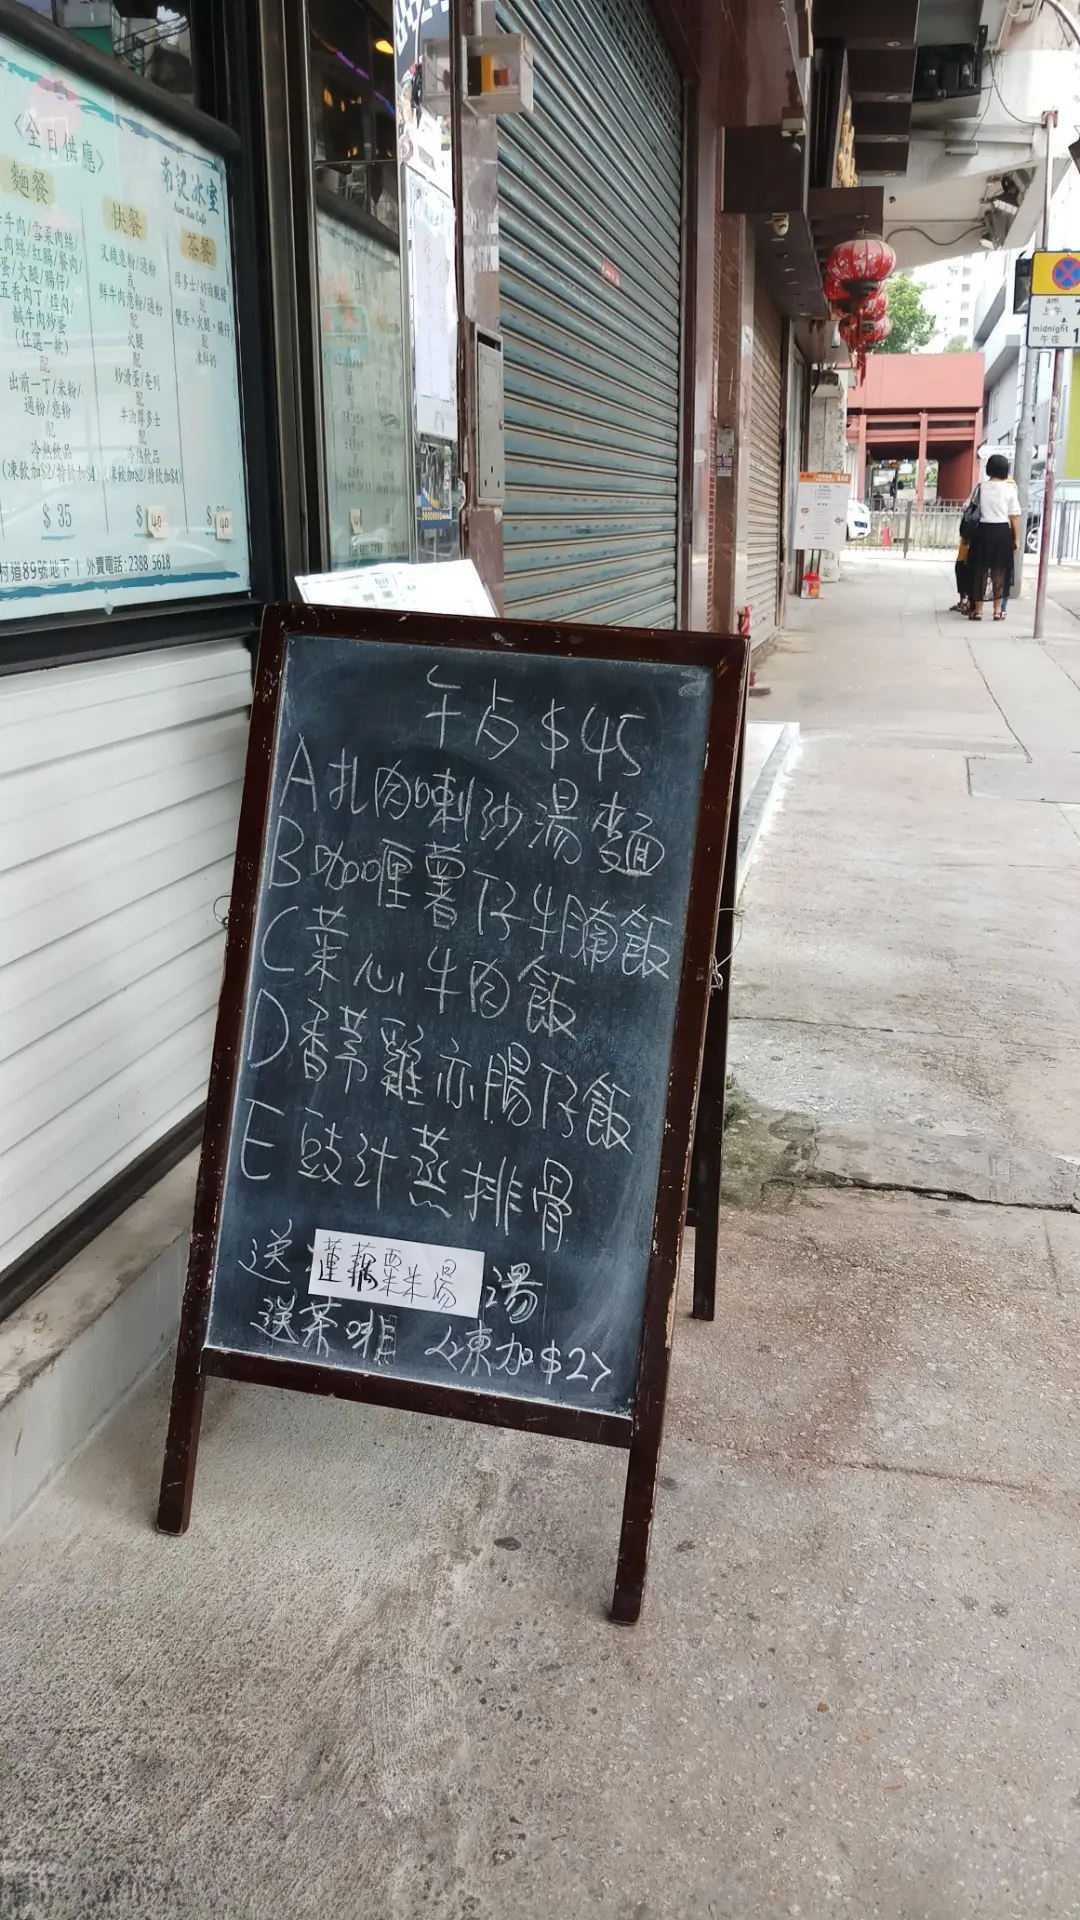 <全日供應>
麵餐
雪菜肉絲/
紅腸/餐肉/
蛋/火腿/腸仔/
五香肉丁/煙肉/
鹹牛肉炒蛋
(任選一款)
配
出前一丁/米粉/
通粉/意粉
配
冷熱飲品
(凍飲加$2/特飲加$4)
$35
快餐
叉燒意粉/通粉
或
鮮牛肉意粉/通粉
配
火腿
配
炒滑蛋/奄列
配
牛油厚多士
配
冷熱飲品
(凍飲加$2/特飲加$4)
$40
南記冰室
Nam Kee Café
茶餐
配
雙蛋、火腿、腸仔
配
$40
村道89號地下 | 外賣電話:2388 5618
午卢 $45
A 扎肉喇沙湯麵
B 咖喱薯仔牛腩飯
C 菜心牛肉飯
D 香茅雞亦腸仔飯
E 豉汁蒸排骨
送 蓮藕粟米湯 湯
送茶啡 <凍加$2>
am
上午
midnight
午夜